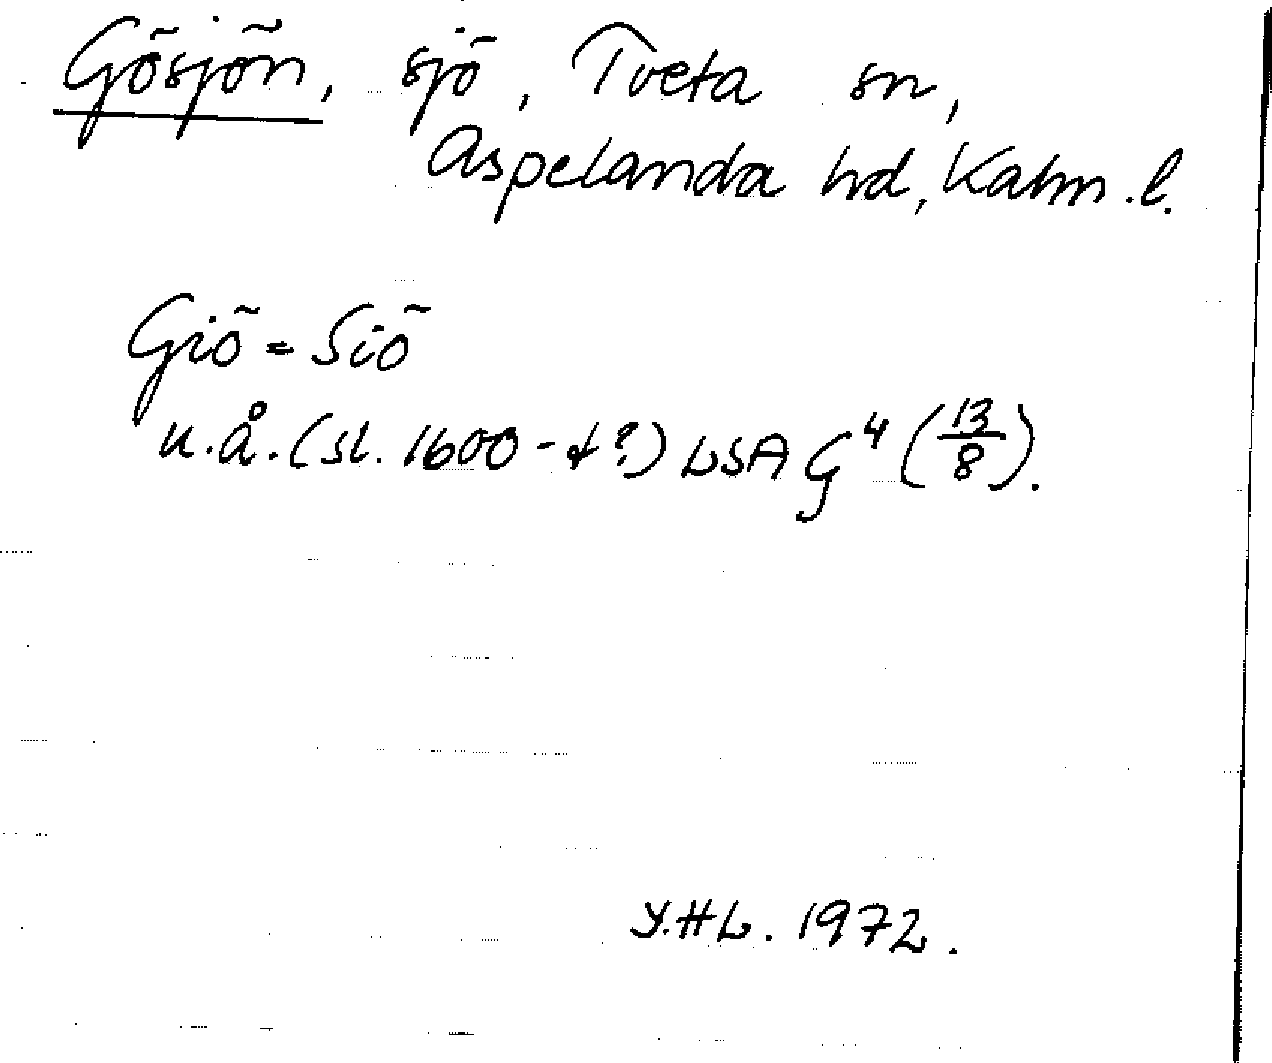 Gösjön, sjö, Tveta sn,
Aspelanda hd, Kalm. l.
Giö = Siö
u.å. (sl. 1600-t?) LSA G⁴ (13/8).
Y.HL. 1972.